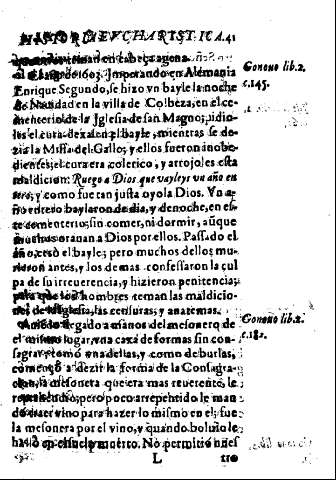 HISTORIA EVCHARISTICA. 41
en cabeça agena.
el año de 1003. Imperando en Alemania
Enrique Segundo, se hizo vn bayle la noche
de Nauidad en la villa de Colbeza, en el ce-
menterio de la Iglesia de san Magno; pidio-
les el cura dexasen el bayle, mientras se de-
zia la Missa del Gallo; y ellos fueron inobe-
dientes; el cura era colerico, y arrojoles esta
maldicion: Ruego a Dios que vayleys vn año en
tero; y como fue tan justa oyola Dios. Vn a-
ño entero baylaron de dia, y de noche, en es-
te cementerio; sin comer, ni dormir, aũque
muchos orauan a Dios por ellos. Passado el
año, cesò el bayle; pero muchos dellos mu-
rieron antes, y los demas confessaron la cul
pa de su irreuerencia, y hizieron penitencia;
para que los hombres teman las maldicio-
nes de la Iglesia, las censuras, y anatemas.
llegado a manos del mesonero de
el mismo lugar, vna caxa de formas sin con-
sagrar; tomò vna dellas, y como de burlas,
començò a dezir la forma de la Consagra-
cion, la mesonera que era mas reuerente, le
reprehendio; pero poco arrepentido le man
do traer vino para hazer lo mismo en el; fue
la mesonera por el vino, y quando boluio le
hallò en el suelo muerto. No permitiò
L
Gonono lib. 2.
c. 145.
Gonono lib. 2.
c. 182.